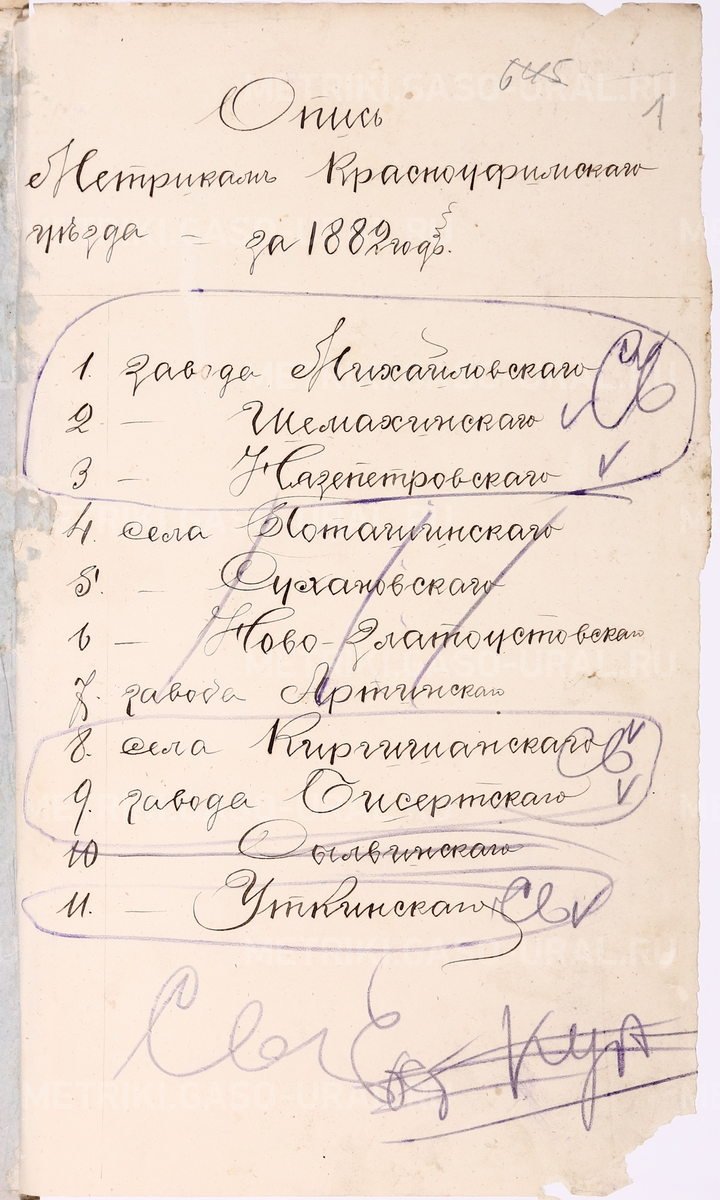 645
1
Опись
Метрикамъ Красноуфимскаго
уѣзда — за 1882 годъ.
1. завода Михайловскаго Св
2 — Шемахинскаго
3 — Нязепетровскаго
4. села Поташинскаго
5. — Сухановскаго
6 — Ново-Златоустовскаго
7. завода Артинскаго
8. села Киргишанскаго Св
9. завода Бисертскаго
10 Сылвинскаго
11. — Уткинскаго Св